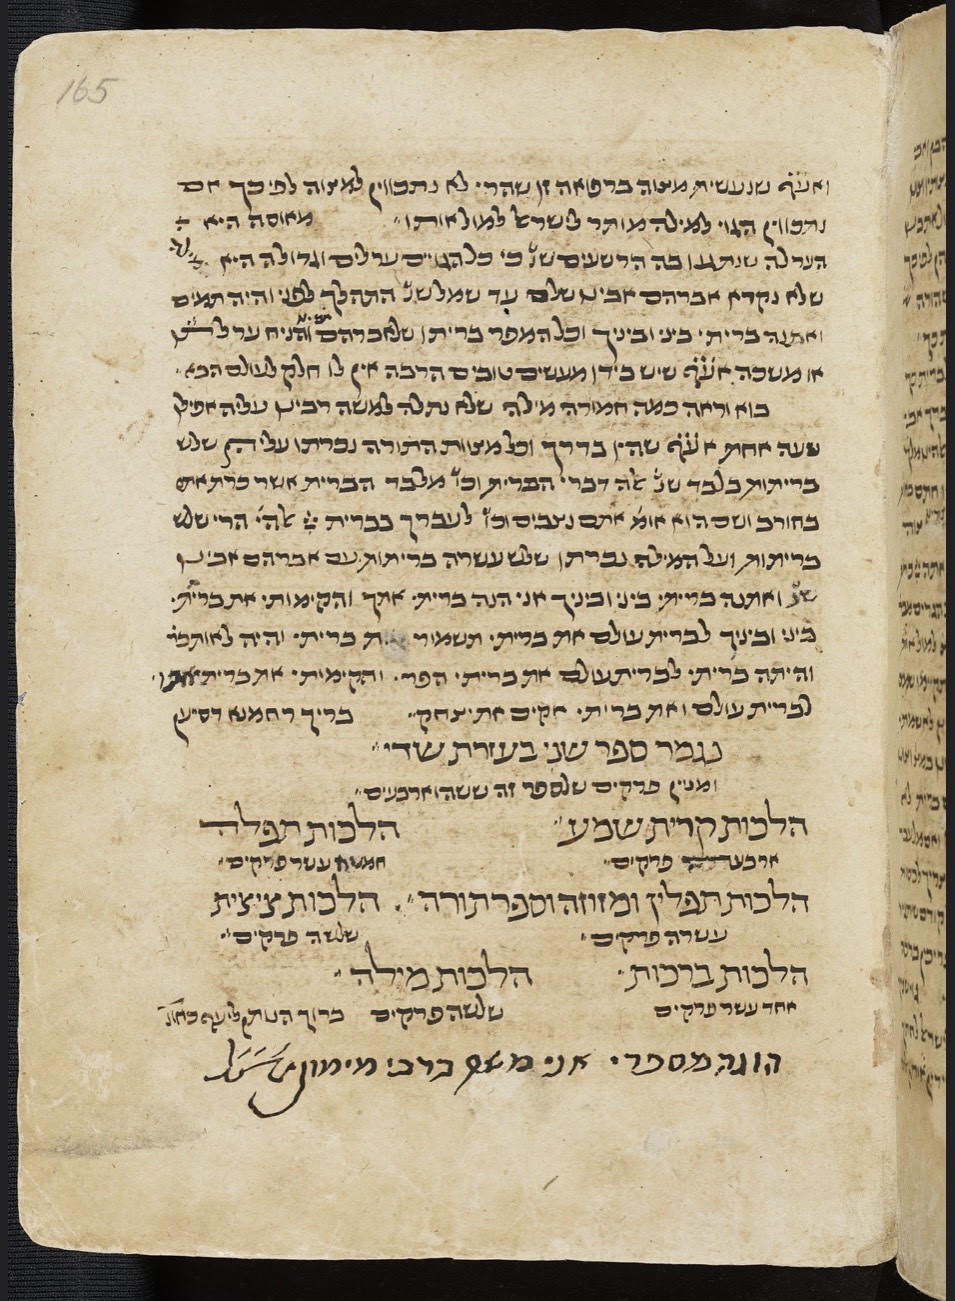 165
ואע״פ שנעשית מצוה ברפואה זו שהרי לא נתכווין למצוה לפיכך אם
נתכווין הגוי למילה מותר לישראל למול אותו מאוסה היא
הערלה שנתגנו בה הרשעים שנ׳ כי כל הגויים ערלים וגדולה היא
שלא נקרא אברהם אבינו שלם עד שמל שנ׳ התהלך לפני והיה תמים
ואתנה בריתי ביני וביניך וכל המפר בריתו שלאברהם והניח ערלתו
או משכה אע״פ שיש בידו מעשים טובים הרבה אין לו חלק לעולם הבא
בוא וראה כמה חמורה מילה שלא נתלה למשה רבינו עליה אפילו
שעה אחת אע״פ שהיו בדרך וכל מצוות התורה נכרתו עליהן שלש
בריתות בלבד שנ׳ אלה דברי הברית וכו׳ מלבד הברית אשר כרת אתם
בחורב ושם הוא אומ׳ אתם נצבים וכו׳ לעברך בברית יי אלהי׳ הרי שלש
בריתות ועל המילה נכרתו שלש עשרה בריתות עם אברהם אבינו
שנ׳ ואתנה בריתי ביני וביניך אני הנה בריתי אתך והקימותי את בריתי
ביני וביניך לברית עולם את בריתי תשמור את בריתי והיה לאות ברי׳
והיתה בריתי לברית עולם את בריתי הפר והקימותי את בריתי אתו
לברית עולם ואת בריתי אקים את יצחק בריך רחמנא דסייען
נגמר ספר שני בעזרת שדי
ומניין פרקים שלספר זה ששה וארבעים
הלכות קרית שמע הלכות תפלה
ארבעה פרקים חמשה עשר פרקים
הלכות תפלין ומזוזה וספר תורה הלכות ציצית
עשרה פרקים שלשה פרקים
הלכות ברכות הלכות מילה
אחד עשר פרקים שלשה פרקים ברוך הנותן ליעף כח
הוגה מספרי אני משה ברבי מימון זצ״ל